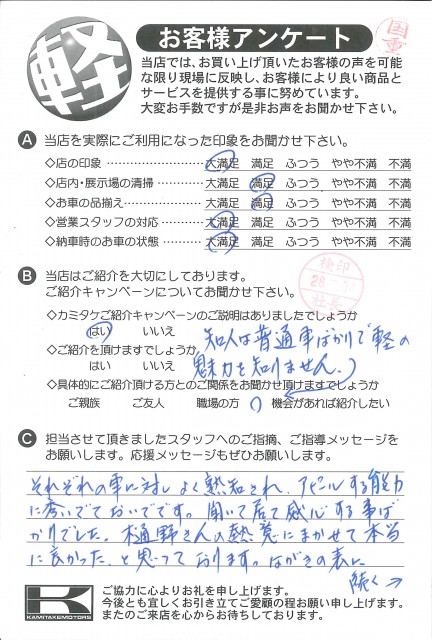 軽
お客様アンケート
国重
当店では、お買い上げ頂いたお客様の声を可能
な限り現場に反映し、お客様により良い商品と
サービスを提供する事に努めています。
大変お手数ですが是非お声をお聞かせ下さい。
A 当店を実際にご利用になった印象をお聞かせ下さい。
◇店の印象 大満足 満足 ふつう やや不満 不満
◇店内・展示場の清掃 大満足 満足 ふつう やや不満 不満
◇お車の品揃え 大満足 満足 ふつう やや不満 不満
◇営業スタッフの対応 大満足 満足 ふつう やや不満 不満
◇納車時のお車の状態 大満足 満足 ふつう やや不満 不満
B 当店はご紹介を大切にしております。
ご紹介キャンペーンについてお聞かせ下さい。
検印
28
社長
◇カミタケご紹介キャンペーンのご説明はありましたでしょうか
はい いいえ
◇ご紹介を頂けますでしょうか
はい いいえ
知人は普通車ばかりで軽の
魅力を知りません。)
◇具体的にご紹介頂ける方とのご関係をお聞かせ頂けますでしょうか
ご親族 ご友人 職場の方 機会があれば紹介したい
C 担当させて頂きましたスタッフへのご指摘、ご指導メッセージを
お願いします。応援メッセージもぜひお願いします。
それぞれの車に対しよく熟知され、アピールする能力
に秀いでておいでです。聞いて居て感心する事ば
かりでした。樋野さんの熱意にまかせて本当
に良かったと思っております。はがきの表に
続く→
K
KAMITAKEMOTORS
ご協力に心よりお礼を申し上げます。
今後とも宜しくお引き立てご愛顧の程お願い申し上げます。
またのご来店を心からお待ちしております。